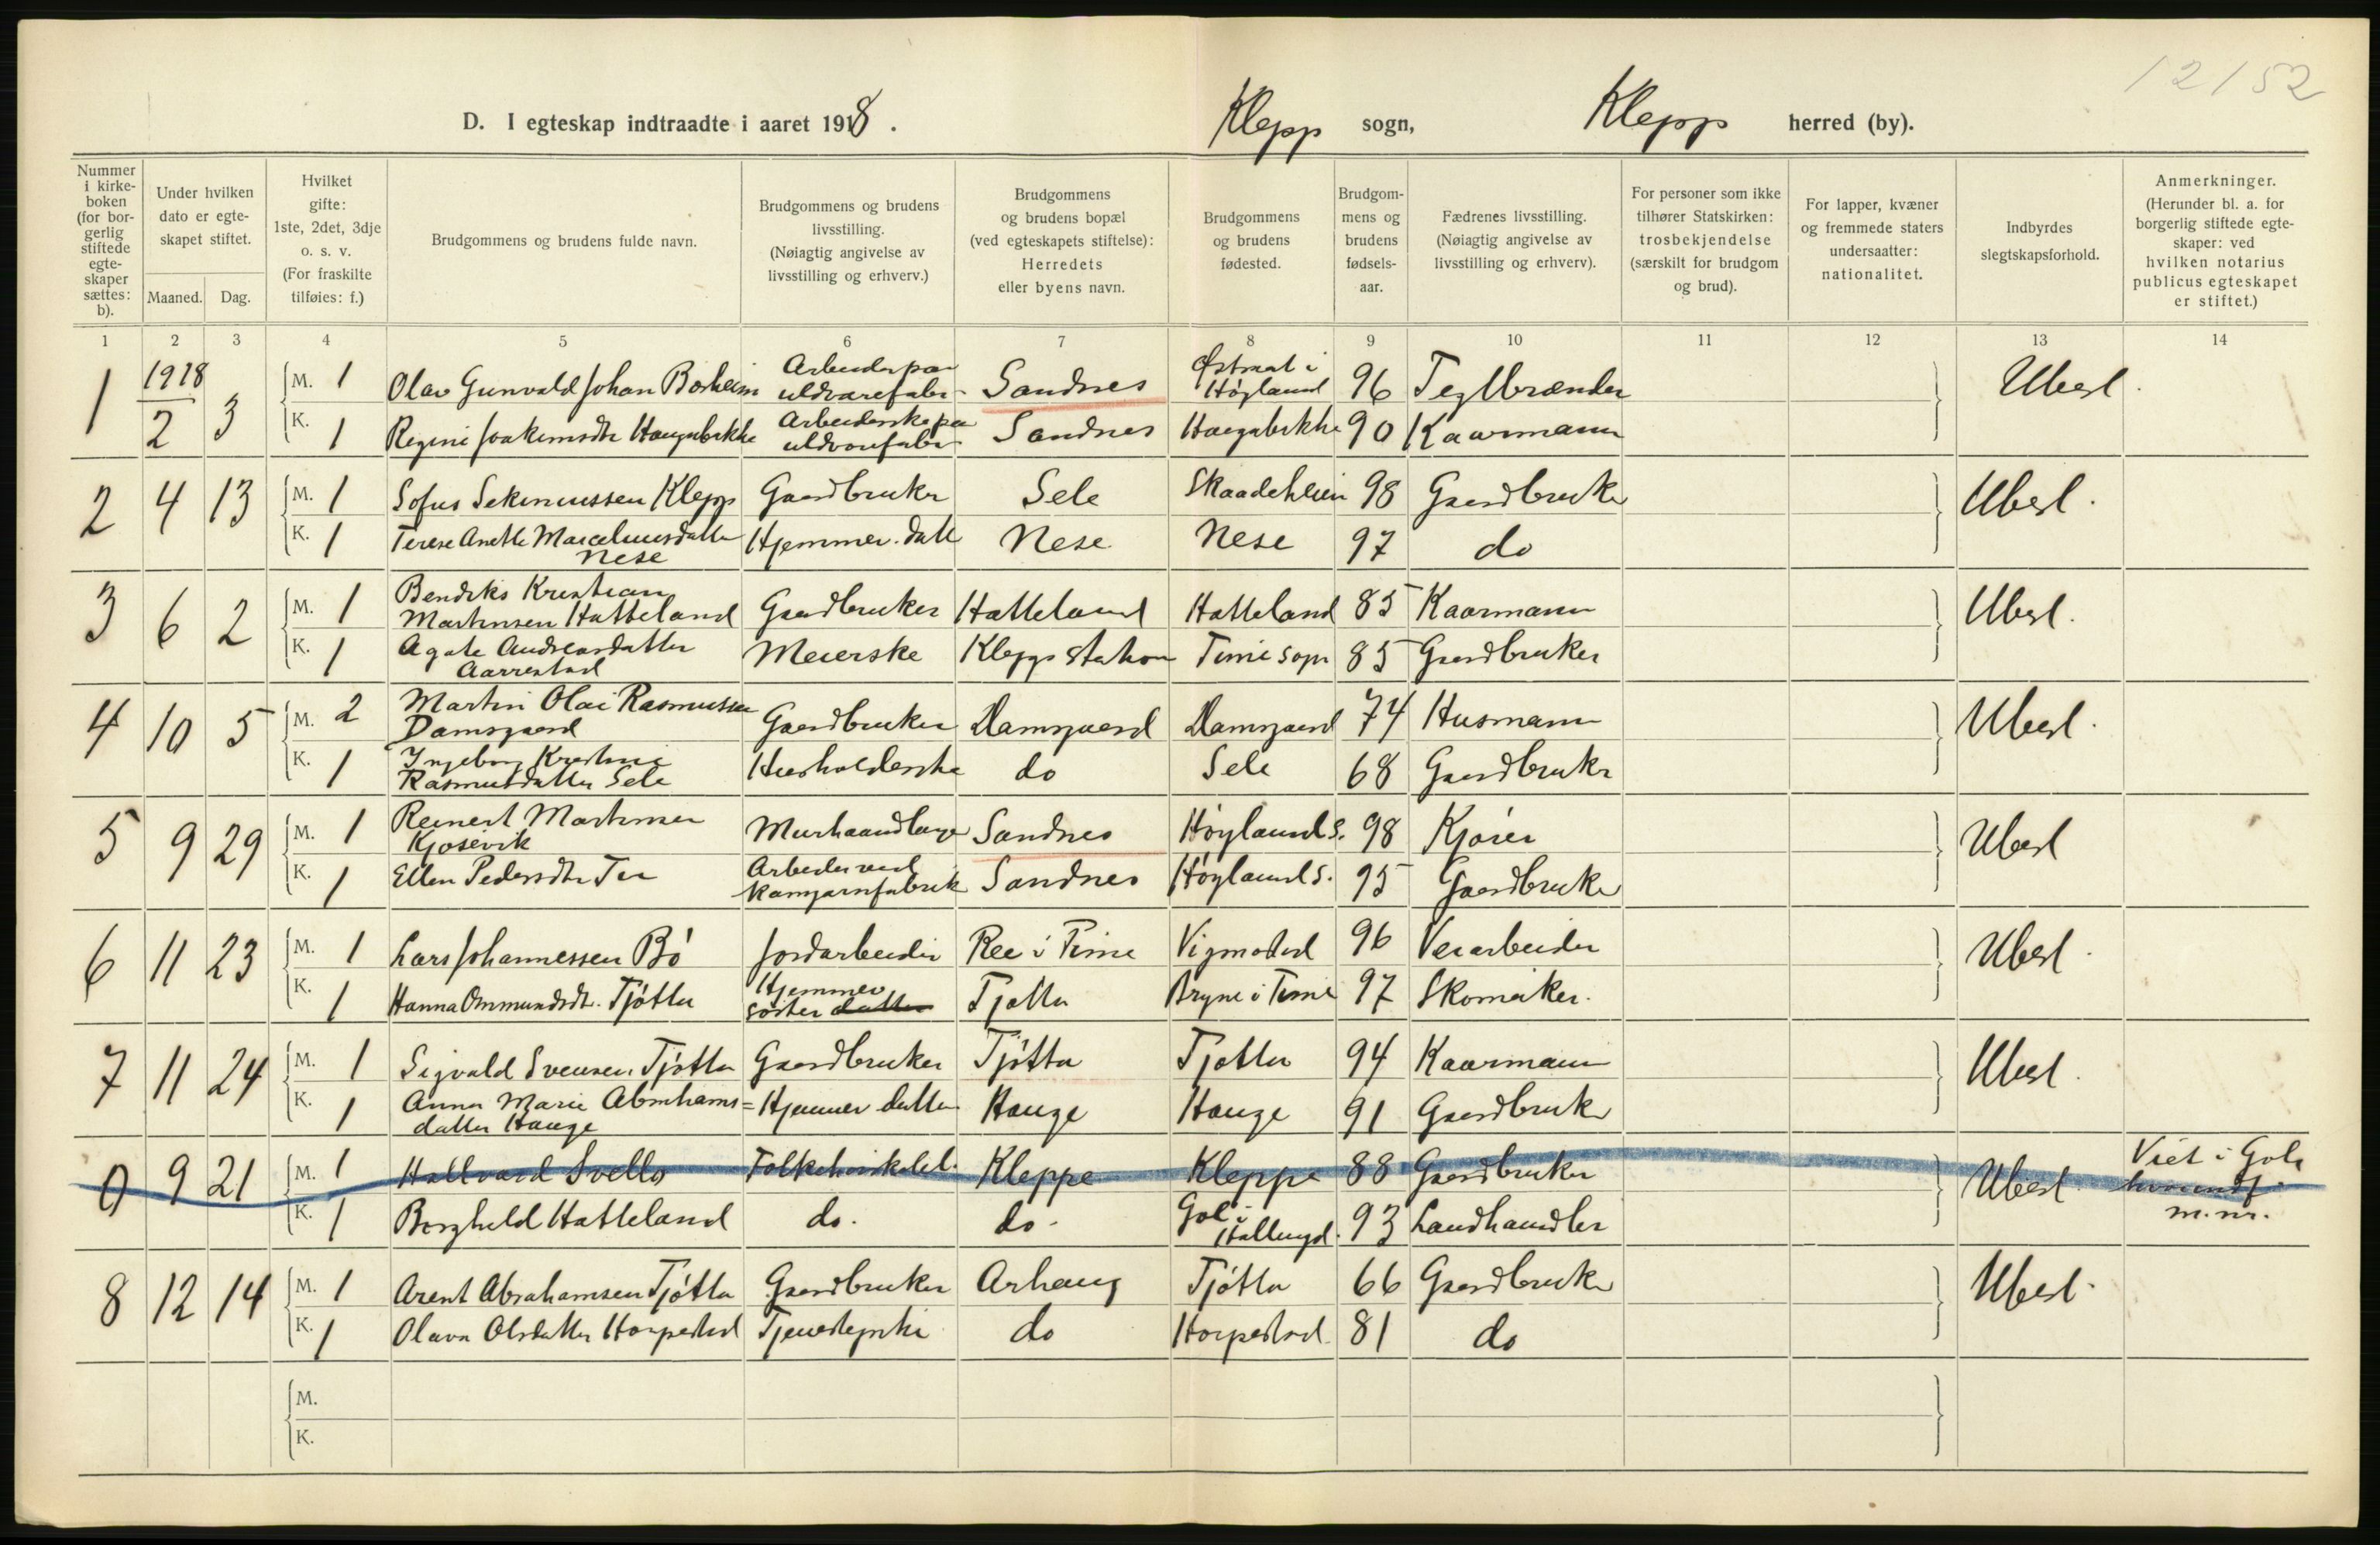 12/52
D. I egteskap indtraadte i aaret 1918. Klepp sogn, Klepp herred (by).
Nummer i kirkeboken (for borgerlig stiftede egteskaper sættes: b).
Under hvilken dato er egteskapet stiftet.
Maaned. Dag.
Hvilket gifte: 1ste, 2det, 3dje o. s. v. (For fraskilte tilføies: f.)
Brudgommens og brudens fulde navn.
Brudgommens og brudens livsstilling. (Nøiagtig angivelse av livsstilling og erhverv.)
Brudgommens og brudens bopæl (ved egteskapets stiftelse): Herredets eller byens navn.
Brudgommens og brudens fødested.
Brudgommens og brudens fødselsaar.
Fædrenes livsstilling. (Nøiagtig angivelse av livsstilling og erhverv).
For personer som ikke tilhører Statskirken: trosbekjendelse (særskilt for brudgom og brud).
For lapper, kvæner og fremmede staters undersaatter: nationalitet.
Indbyrdes slegtskapsforhold.
Anmerkninger. (Herunder bl. a. for borgerlig stiftede egteskaper: ved hvilken notarius publicus egteskapet er stiftet.)
1 2 3 4 5 6 7 8 9 10 11 12 13 14
1 1918 2 3 M. 1 Olav Gunvald Johan Borheim Arbeider paa uldvarefabr. Sandnes i Høyland 96 Teglbrænder Ubesl.
K. 1 Regine Joakimsdtr Haugabekke Arbeiderske paa uldvarefabr Sandnes Haugabekke 90 Kaarmann
2 4 13 M. 1 Sofus Sekmussen Klepp Gaardbruker Sele Skaadeheien 98 Gaardbruker Ubesl.
K. 1 Terese Anette Marcelinusdatter Nese Hjemmev. datt Nese Nese 97 do
3 6 2 M. 1 Bendiks Kristian Martinsen Hatteland Gaardbruker Hatteland Hatteland 85 Kaarmann Ubesl.
K. 1 Agate Andreasdatter Aarrestad Meierske Klepp station Time sogn 85 Gaardbruker
4 10 5 M. 2 Martin Olai Rasmussen Damsgaard Gaardbruker Damsgaard Damsgaard 74 Husmann Ubesl.
K. 1 Ingeborg Kristine Rasmusdatter Sele Husholderske do Sele 68 Gaardbruker
5 9 29 M. 1 Reinert Martinsen Kjosevik Murhaandlanger Sandnes Høyland s. 98 Kjører Ubesl
K. 1 Ellen Pedersdtr Tu Arbeider ved kamgarnfabrik Sandnes Høyland s. 95 Gaardbruker
6 11 23 M. 1 Lars Johannessen Bø Jordarbeider Ree i Time Vigmostad 96 Veiarbeider Ubesl.
K. 1 Hanna Ommundsdtr. Tjøtta Hjemmev søster datter Tjøtta Bryne i Time 97 Skomaker.
7 11 24 M. 1 Sigvald Svensen Tjøtta Gaardbruker Tjøtta Tjøtta 94 Kaarmann Ubesl.
K. 1 Anna Marie Abrahams=datter Hauge Hjemmev datter Hauge Hauge 91 Gaardbruker
0 9 21 M. 1 Hallvard Svello Folkehøiskolel. Kleppe Kleppe 88 Gaardbruker Ubesl. Viet i Gol, m.nr.
K. 1 Borghild Hatteland do. do. Gol i Hallingd. 93 Landhandler
8 12 14 M. 1 Arent Abrahamsen Tjøtta Gaardbruker Arhaug Tjøtta 66 Gaardbruker Ubesl.
K. 1 Olava Olsdatter Horpestad Tjenestepike do Horpestad 81 do
M.
K.